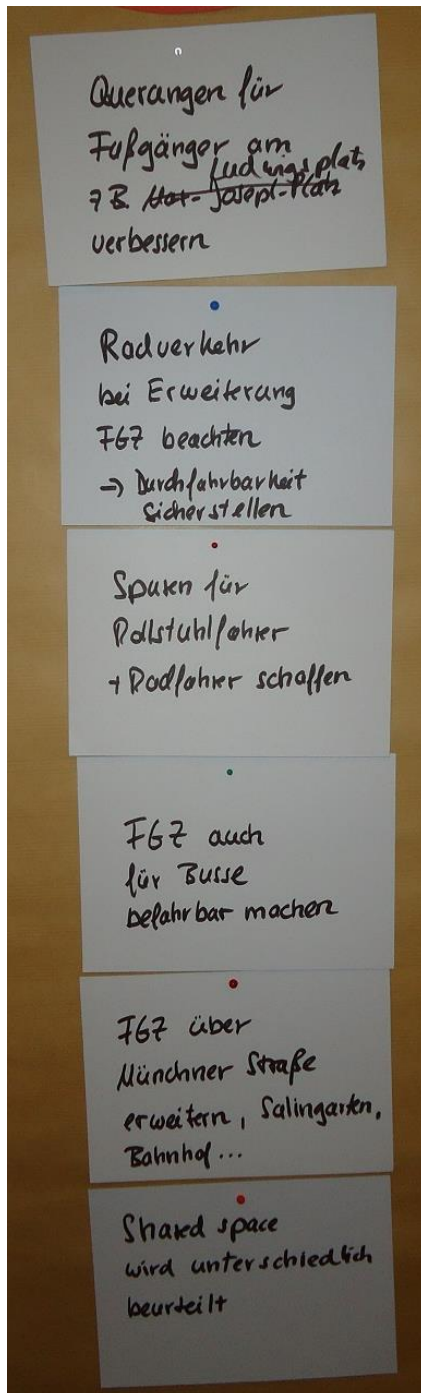 Querungen für
Fußgänger am
Ludwigsplatz
z B Max-Joseph-Platz
verbessern
Radverkehr
bei Erweiterung
FGZ beachten
→ Durchfahrbarkeit
sicherstellen
Spuren für
Rollstuhlfahrer
+ Radfahrer schaffen
FGZ auch
für Busse
befahrbar machen
FGZ über
Münchner Straße
erweitern, Salingarten,
Bahnhof...
Shared space
wird unterschiedlich
beurteilt